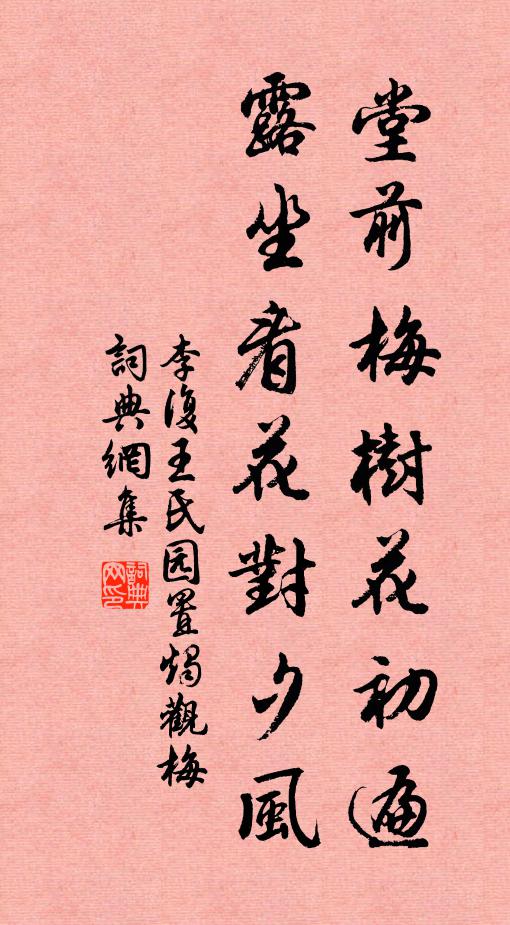 堂前梅樹花初遍
露坐看花對夕風
李復王氏园置燭觀梅
詞典網集
詞典網印